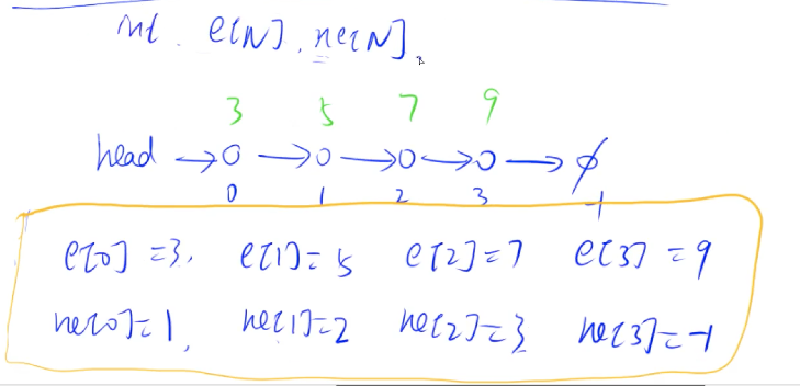 int e[N], ne[N],
3 5 7 9
head →o →o →o →o → ∅
0 1 2 3 -1
e[0]=3, e[1]=5 e[2]=7 e[3]=9
ne[0]=1, ne[1]=2 ne[2]=3 ne[3]=-1